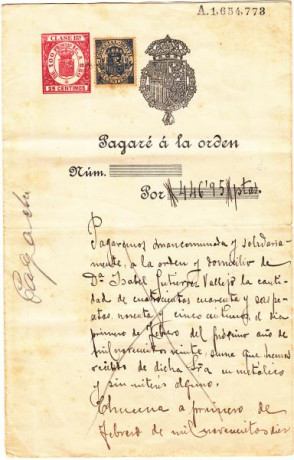 A.1.654.773
CLASE 12ª
100 PESETAS A 250
25 CENTIMOS
Pagaré á la orden
Núm.
Por #446'95# ptas.
Pagaré
Pagaremos mancomunada y solidaria-
mente, a la orden y domicilio de
Dª Isabel Gutierrez Vallejo la canti-
dad de cuatrocientas cuarenta y seis pe-
setas, noventa y cinco centimos, el dia
primero de febrero del próximo año de
mil novecientos veinte, suma que hemos
recibido de dicha Sra en metalico
y sin interés alguno.
a primero de
febrero de mil novecientos diez